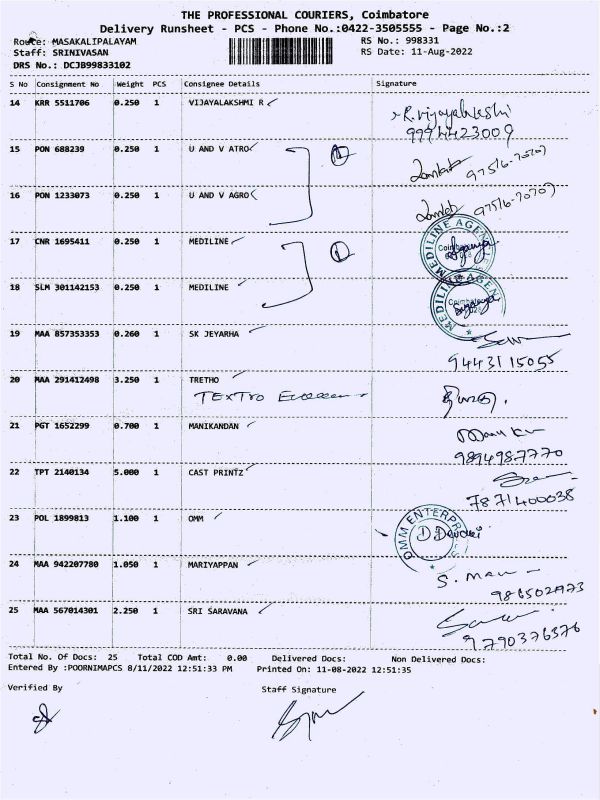 THE PROFESSIONAL COURIERS, Coimbatore
Delivery Runsheet - PCS - Phone No.:0422-3505555 - Page No.:2
Route: MASAKALIPALAYAM
RS No.: 998331
Staff: SRINIVASAN
RS Date: 11-Aug-2022
DRS No.: DCJB99833102
S No Consignment No Weight PCS Consignee Details Signature
14 KRR 5511706 0.250 1 VIJAYALAKSHMI R
R.Vijayalakshi
9994423009
15 PON 688239 0.250 1 U AND V ATRO
97516-70707
16 PON 1233073 0.250 1 U AND V AGRO
97516-70707
17 CNR 1695411 0.250 1 MEDILINE
MEDILINE AGEN
18 SLM 301142153 0.250 1 MEDILINE
MEDILINE AGEN
19 MAA 857353353 0.260 1 SK JEYARHA
9443115055
20 MAA 291412498 3.250 1 TRETHO
TEXTRO
21 PGT 1652299 0.700 1 MANIKANDAN
9894987770
22 TPT 2140134 5.000 1 CAST PRINTZ
7871400038
23 POL 1899813 1.100 1 OMM
OMM ENTERPRISES
D Devaki
24 MAA 942207780 1.050 1 MARIYAPPAN
S. Man
25 MAA 567014301 2.250 1 SRI SARAVANA
9790376376
Total No. Of Docs: 25 Total COD Amt: 0.00 Delivered Docs: Non Delivered Docs:
Entered By :POORNIMAPCS 8/11/2022 12:51:33 PM Printed On: 11-08-2022 12:51:35
Verified By Staff Signature